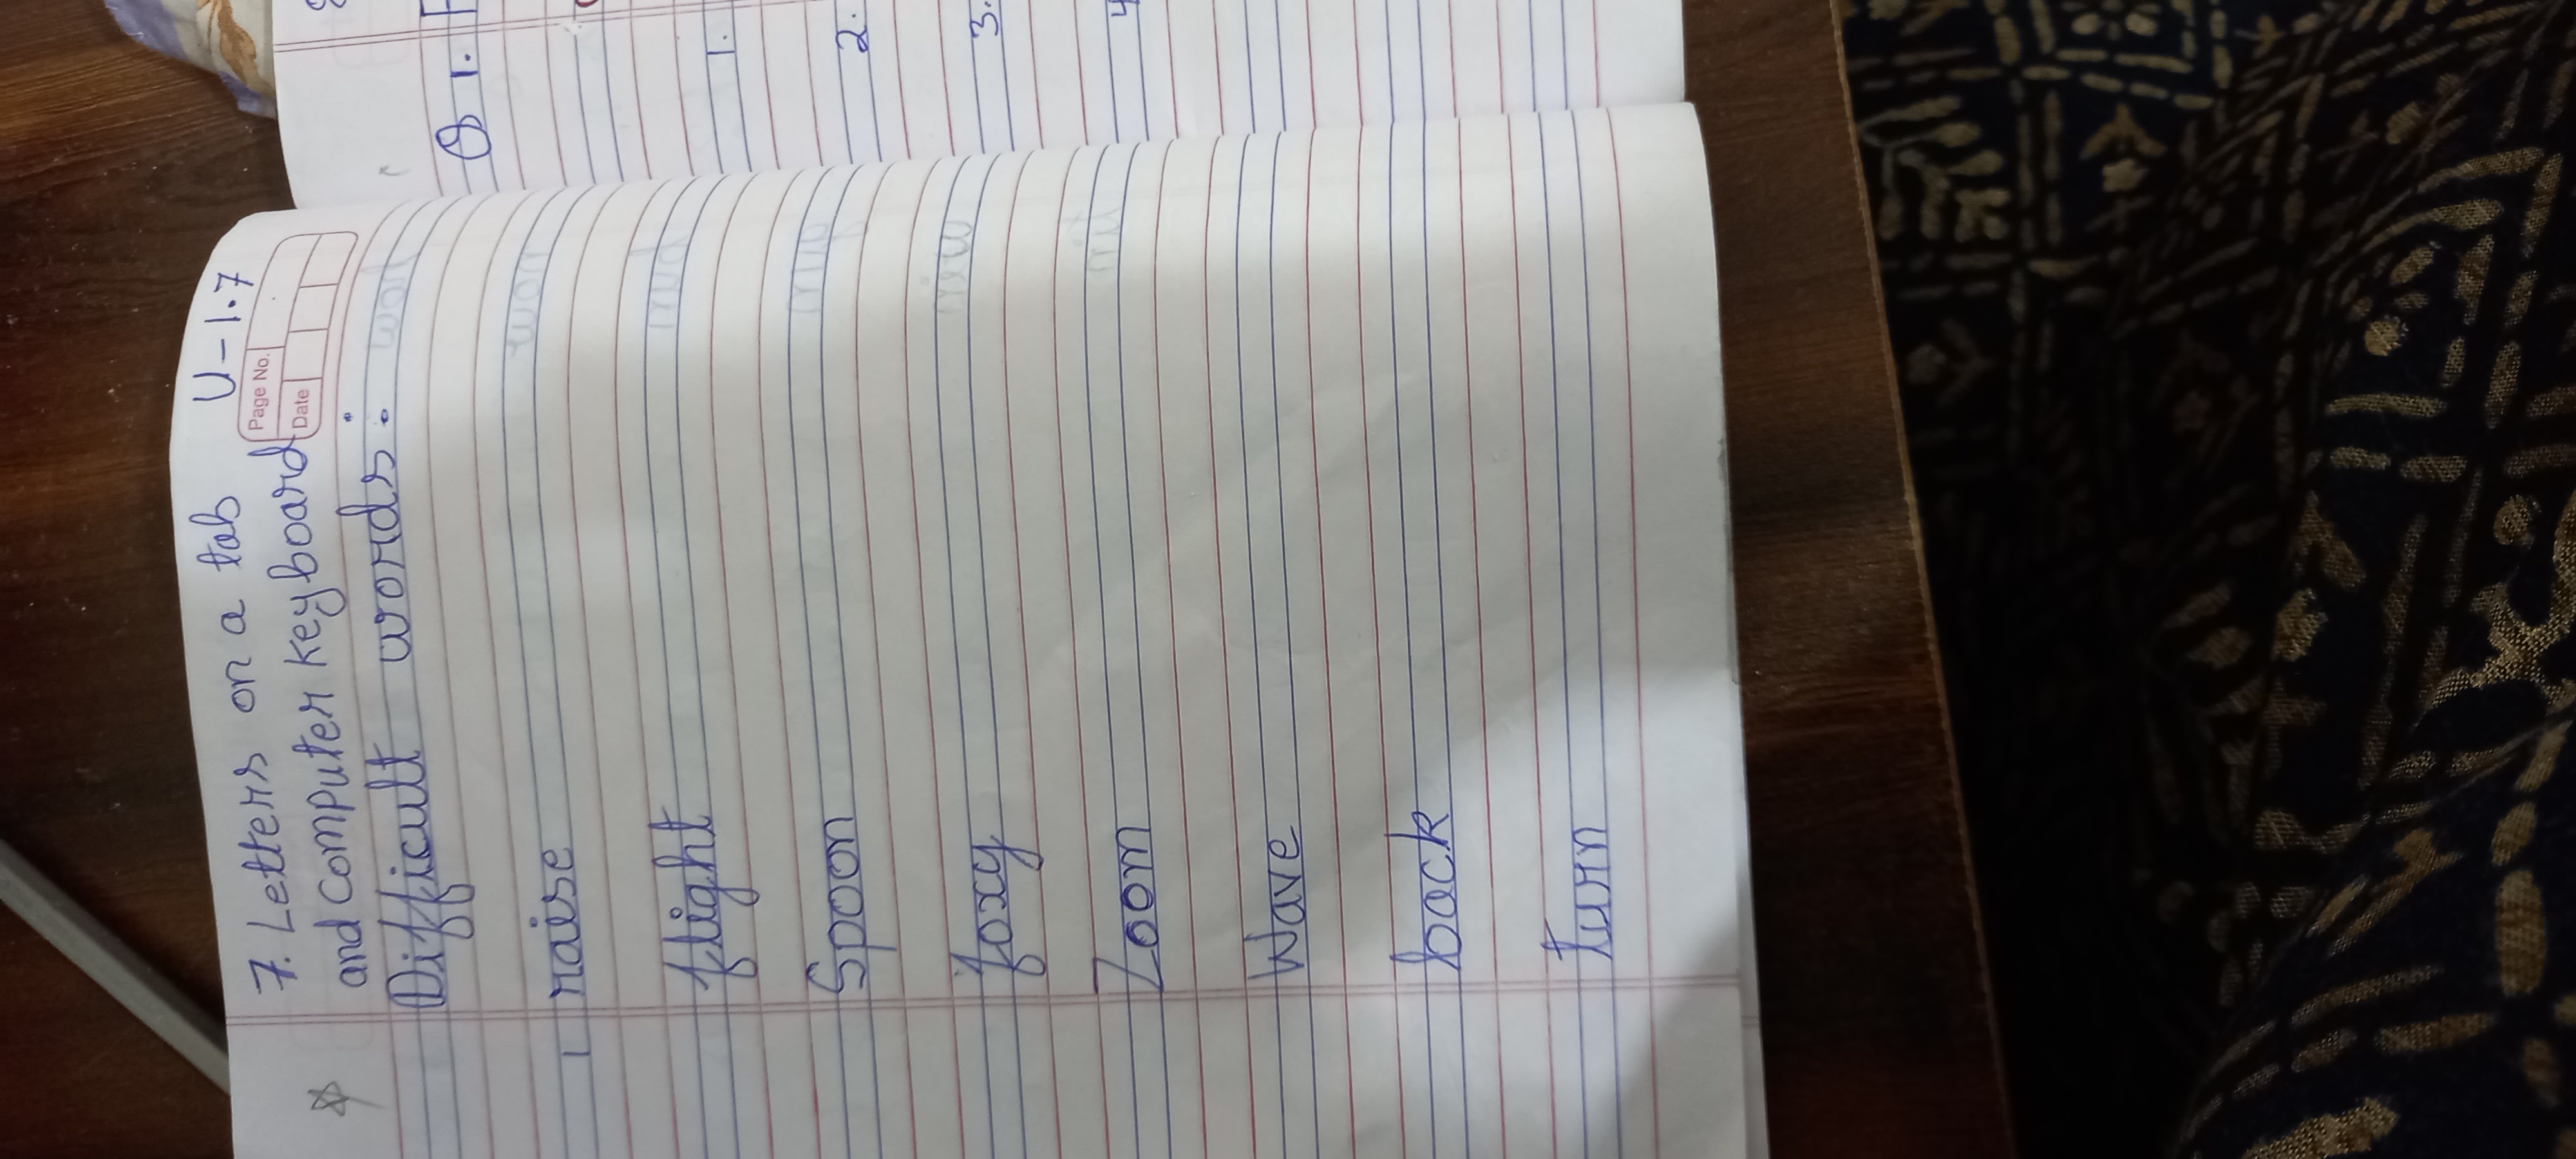 7. Letters on a tab U-1.7
and computer keyboard
Page No.
Date
Difficult words:
1 raise
flight
Spoon
foxy
Zoom
Wave
back
turn
Q 1.
1.
2.
3.
4